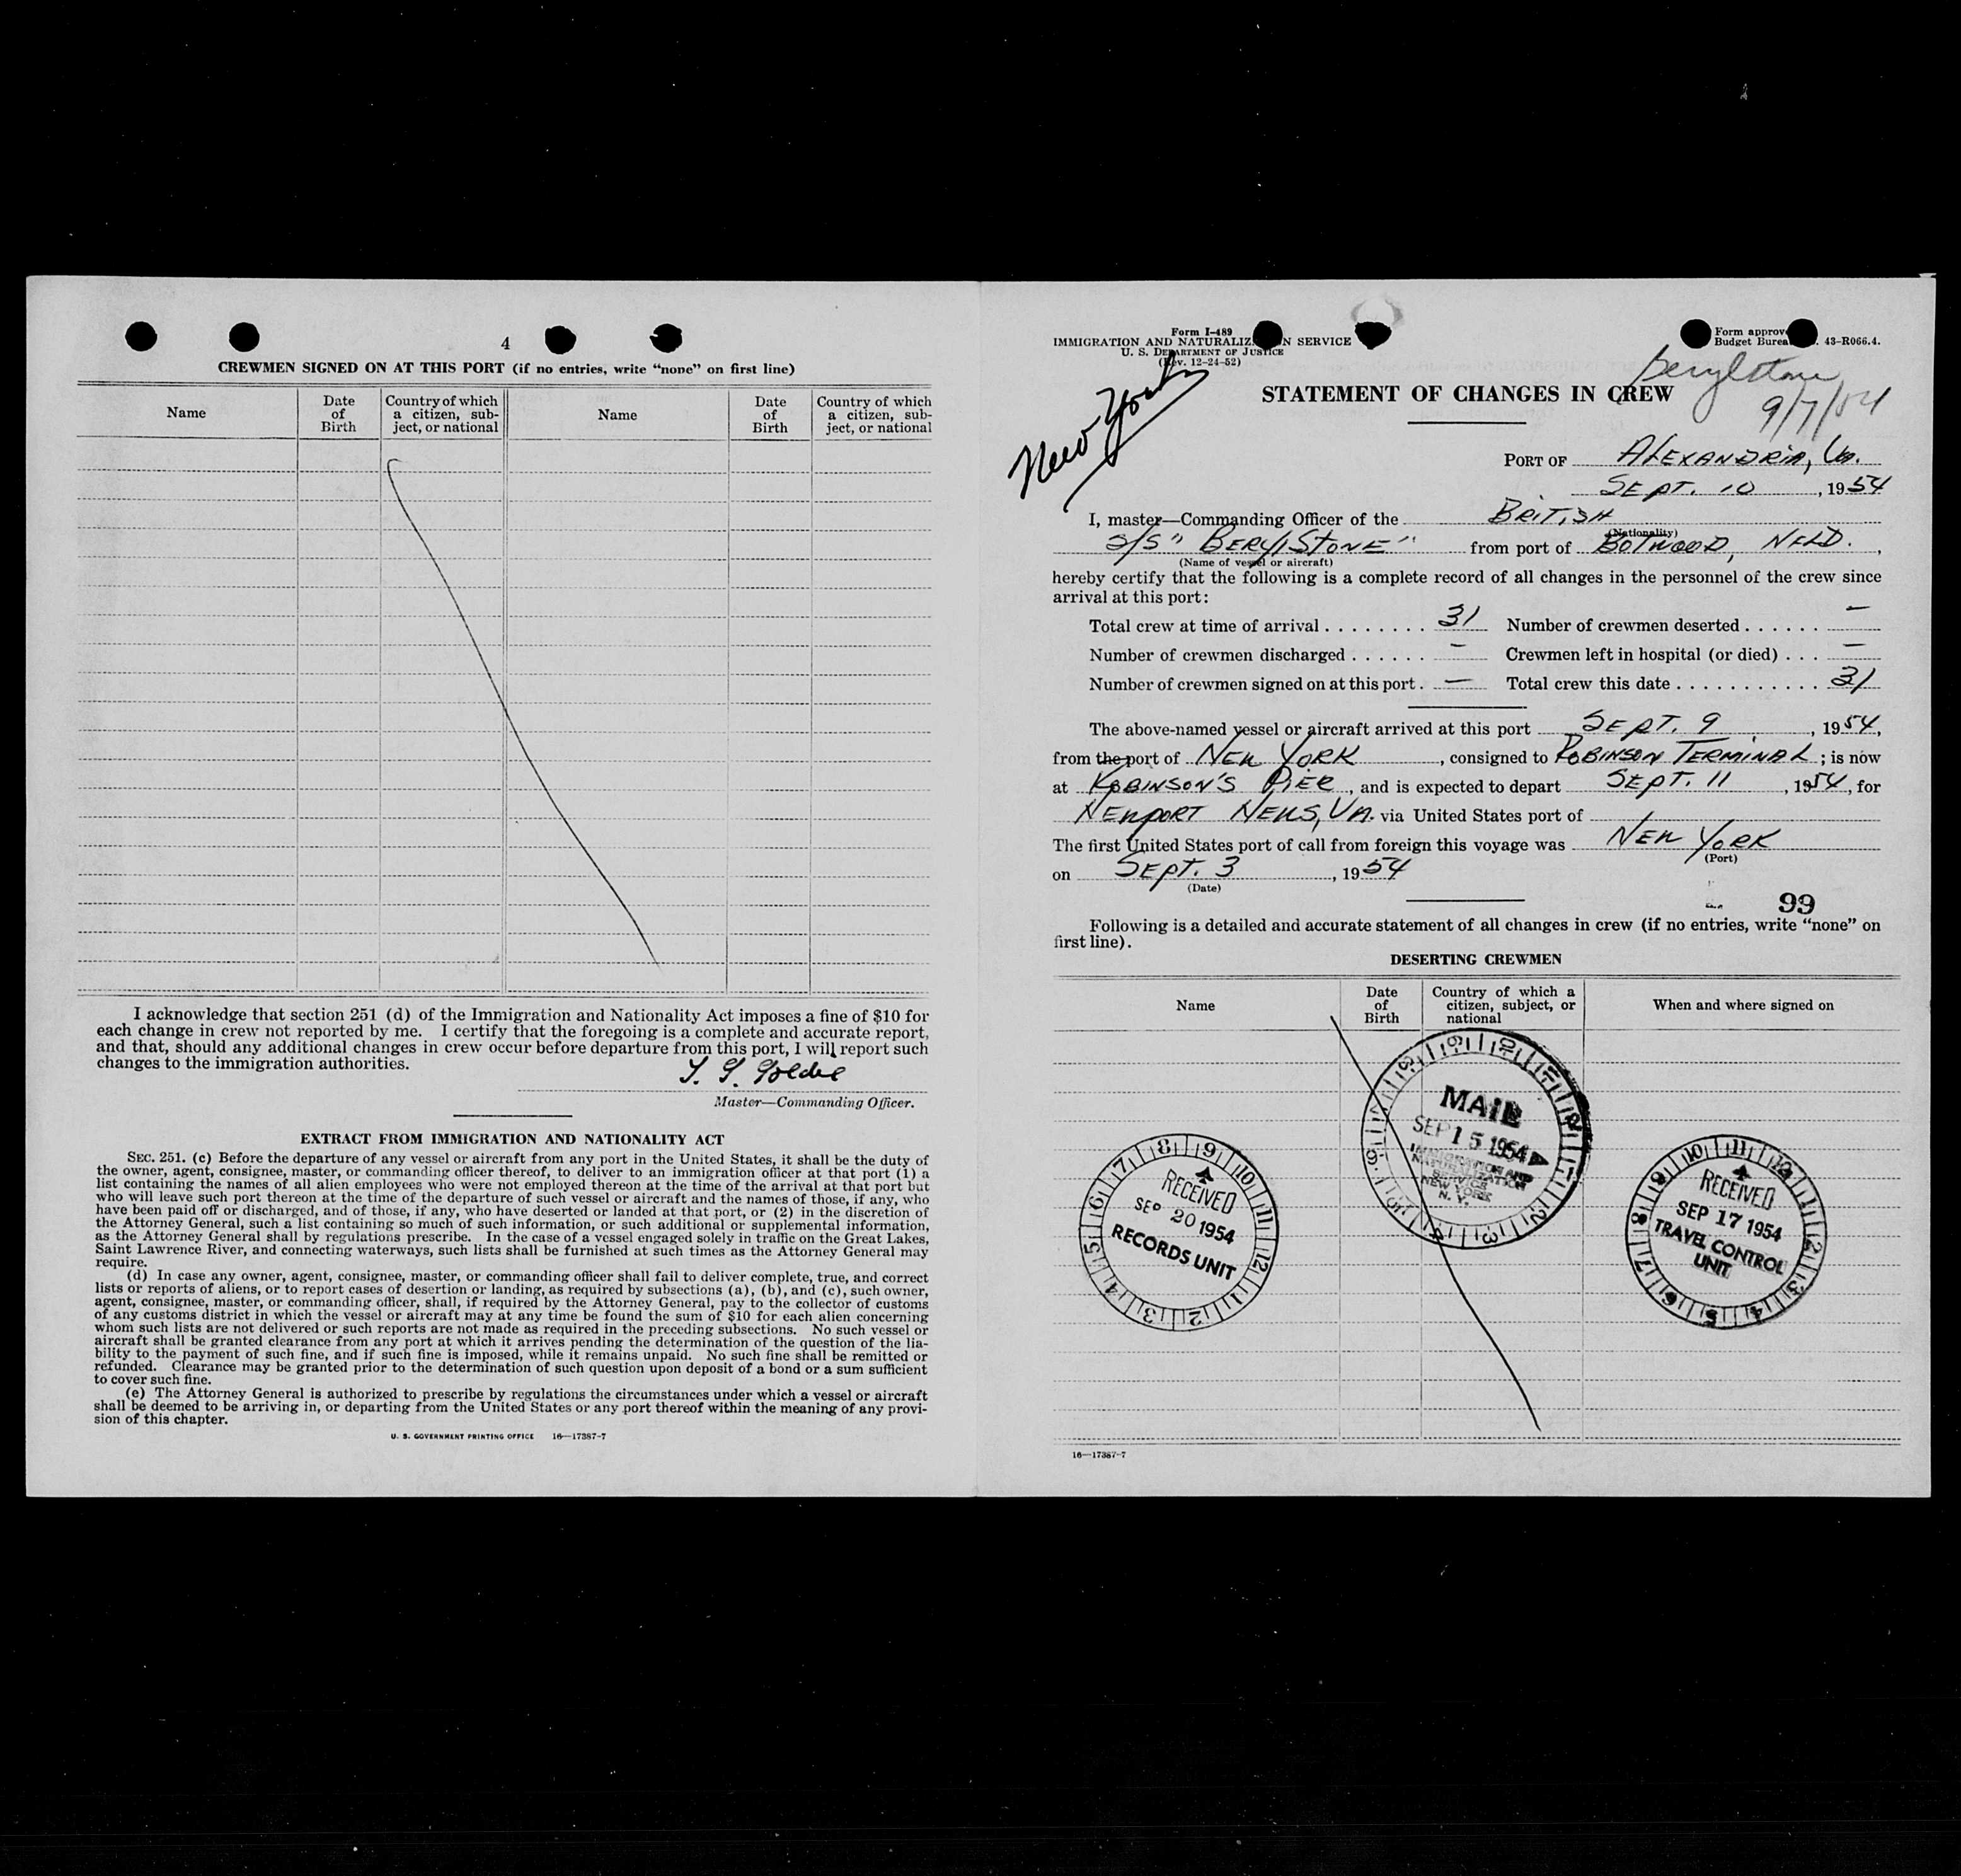 4
CREWMEN SIGNED ON AT THIS PORT (if no entries, write “none” on first line)
Name
Date of Birth
Country of which a citizen, subject, or national
Name
Date of Birth
Country of which a citizen, subject, or national
I acknowledge that section 251 (d) of the Immigration and Nationality Act imposes a fine of $10 for
each change in crew not reported by me. I certify that the foregoing is a complete and accurate report,
and that, should any additional changes in crew occur before departure from this port, I will report such
changes to the immigration authorities.
Master—Commanding Officer.
EXTRACT FROM IMMIGRATION AND NATIONALITY ACT
SEC. 251. (c) Before the departure of any vessel or aircraft from any port in the United States, it shall be the duty of
the owner, agent, consignee, master, or commanding officer thereof, to deliver to an immigration officer at that port (1) a
list containing the names of all alien employees who were not employed thereon at the time of the arrival at that port but
who will leave such port thereon at the time of the departure of such vessel or aircraft and the names of those, if any, who
have been paid off or discharged, and of those, if any, who have deserted or landed at that port, or (2) in the discretion of
the Attorney General, such a list containing so much of such information, or such additional or supplemental information,
as the Attorney General shall by regulations prescribe. In the case of a vessel engaged solely in traffic on the Great Lakes,
Saint Lawrence River, and connecting waterways, such lists shall be furnished at such times as the Attorney General may
require.
(d) In case any owner, agent, consignee, master, or commanding officer shall fail to deliver complete, true, and correct
lists or reports of aliens, or to report cases of desertion or landing, as required by subsections (a), (b), and (c), such owner,
agent, consignee, master, or commanding officer, shall, if required by the Attorney General, pay to the collector of customs
of any customs district in which the vessel or aircraft may at any time be found the sum of $10 for each alien concerning
whom such lists are not delivered or such reports are not made as required in the preceding subsections. No such vessel or
aircraft shall be granted clearance from any port at which it arrives pending the determination of the question of the lia-
bility to the payment of such fine, and if such fine is imposed, while it remains unpaid. No such fine shall be remitted or
refunded. Clearance may be granted prior to the determination of such question upon deposit of a bond or a sum sufficient
to cover such fine.
(e) The Attorney General is authorized to prescribe by regulations the circumstances under which a vessel or aircraft
shall be deemed to be arriving in, or departing from the United States or any port thereof within the meaning of any provi-
sion of this chapter.
U. S. GOVERNMENT PRINTING OFFICE 16—17387-7
Form I-489
IMMIGRATION AND NATURALIZ N SERVICE
U. S. DEPARTMENT OF JUSTICE
(Rev. 12-24-52)
Form approv
Budget Burea . 43-R066.4.
New York
Berylstone
9/7/54
STATEMENT OF CHANGES IN CREW
PORT OF ALEXANDRIA, VA.
SEPT. 10, 1954
I, master—Commanding Officer of the BRITISH
(Nationality)
S/S "BERYLSTONE" from port of BOTWOOD, NFLD.,
(Name of vessel or aircraft)
hereby certify that the following is a complete record of all changes in the personnel of the crew since
arrival at this port:
Total crew at time of arrival ........ 31 Number of crewmen deserted ...... —
Number of crewmen discharged ...... — Crewmen left in hospital (or died) ... —
Number of crewmen signed on at this port. — Total crew this date ............ 31
The above-named vessel or aircraft arrived at this port SEPT. 9, 1954,
from the port of NEW YORK, consigned to ROBINSON TERMINAL; is now
at ROBINSON'S PIER, and is expected to depart SEPT. 11, 1954, for
NEWPORT NEWS, VA. via United States port of
The first United States port of call from foreign this voyage was NEW YORK
(Port)
on SEPT. 3, 1954
(Date)
99
Following is a detailed and accurate statement of all changes in crew (if no entries, write “none” on
first line).
DESERTING CREWMEN
Name
Date of Birth
Country of which a citizen, subject, or national
When and where signed on
MAIL
SEP 15 1954
IMMIGRATION AND
NATURALIZATION
SERVICE
NEW YORK
N. Y.
RECEIVED
SEP 20 1954
RECORDS UNIT
RECEIVED
SEP 17 1954
TRAVEL CONTROL
UNIT
16—17387-7